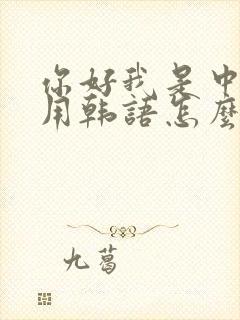 你好我是中
用韩語怎麼
九葛